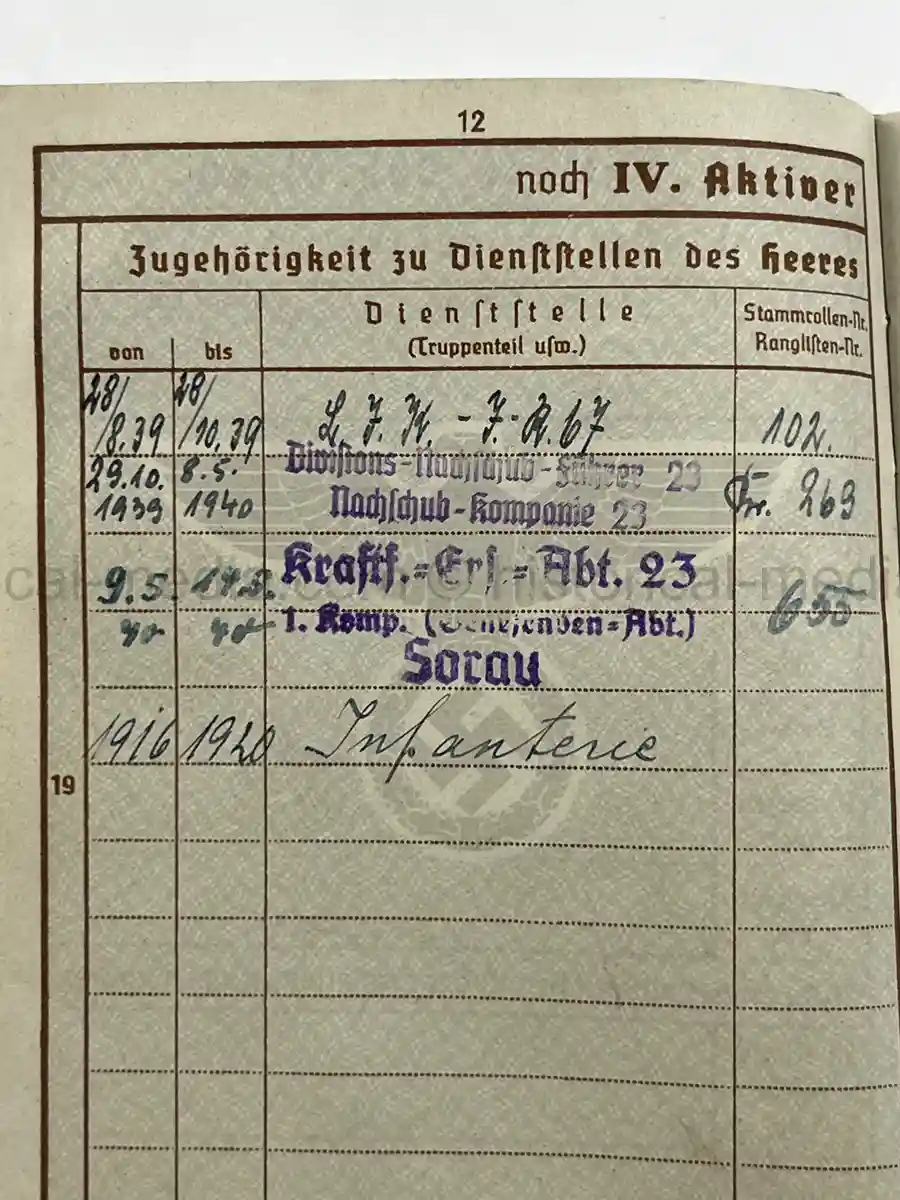 12
noch IV. Aktiver
Zugehörigkeit zu Dienststellen des Heeres
von bis Dienststelle (Truppenteil usw.) Stammrollen-Nr. Ranglisten-Nr.
28/8.39 28/10.39 L. J. K. - J. R. 67 102.
29.10. 8.5. Divisions-Nachschub-Führer 23
1939 1940 Nachschub-Kompanie 23 Fr. 269
9.5. 14.5. Kraftf.=Ers.=Abt. 23 655
40 40 1. Komp. (Genesenden=Abt.)
Sorau
1916 1920 Infanterie
19